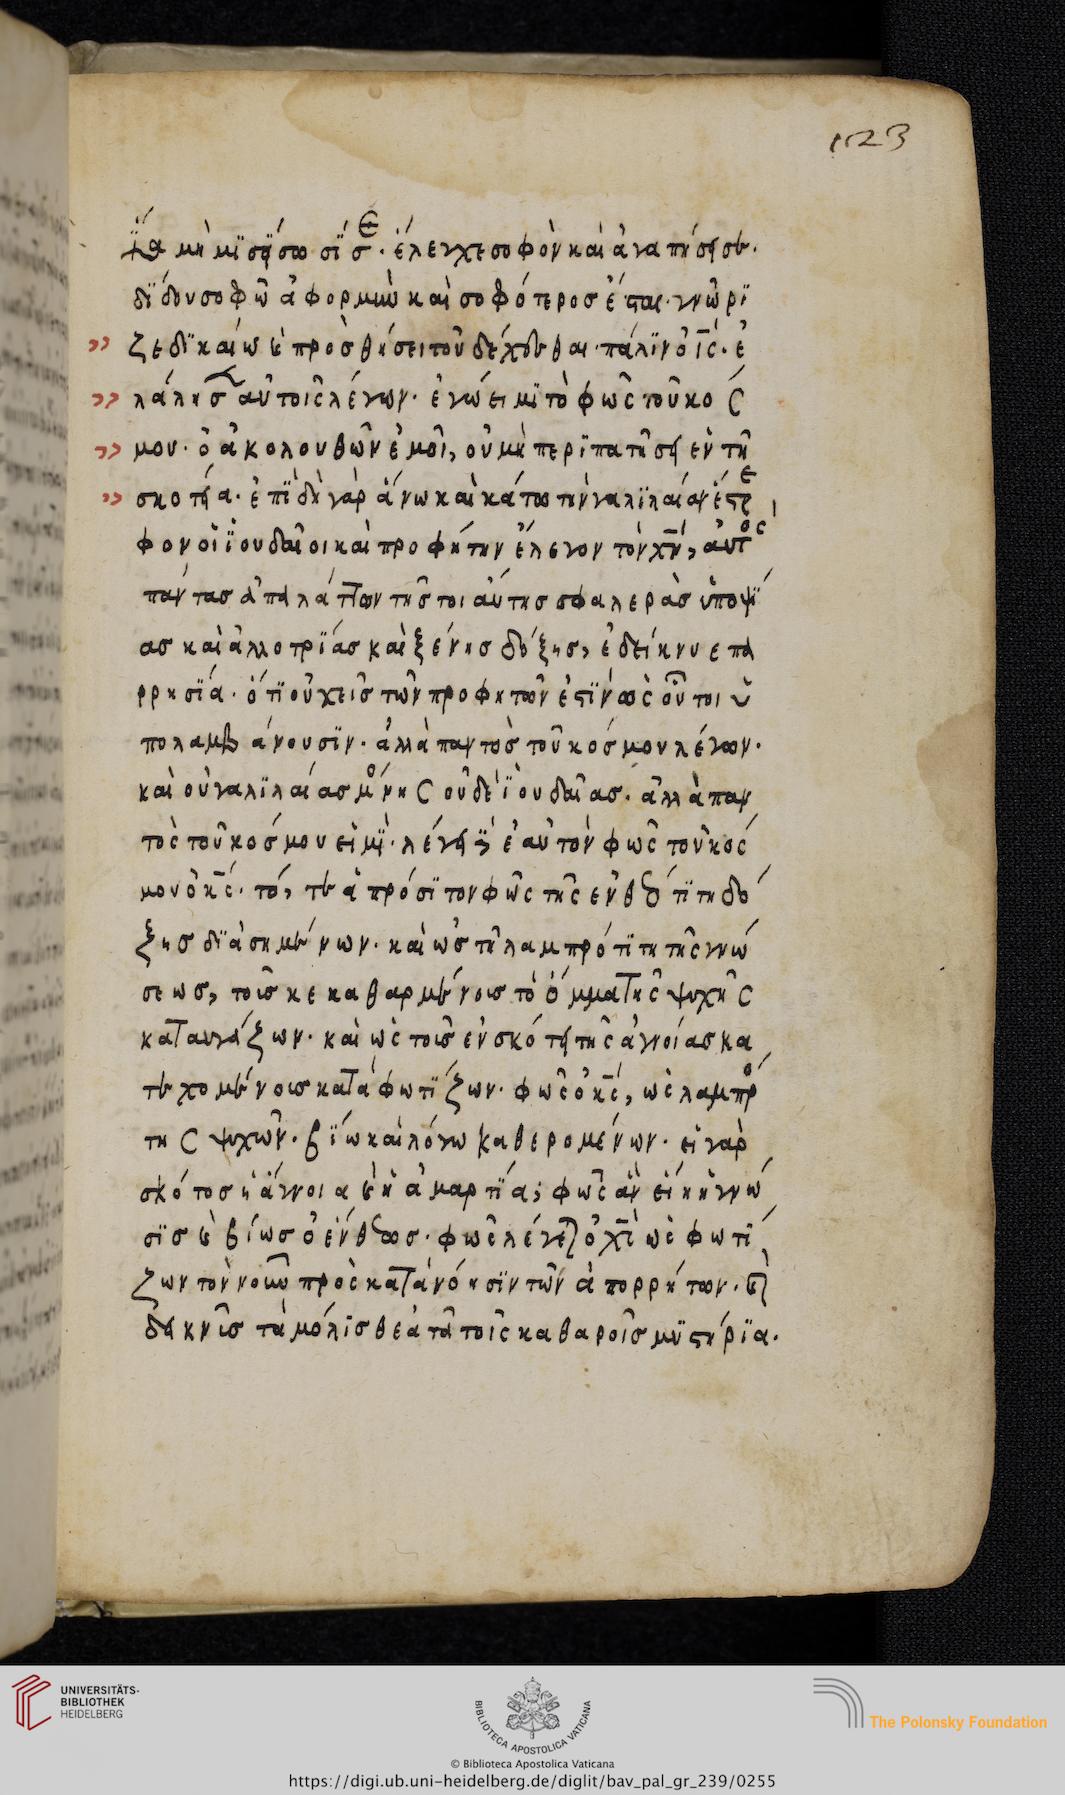 123
ἵνα μὴ μϊσήσωσϊ σε· ἔλεγχε σοφὸν καὶ ἀγαπήσησε·
δϊδου σοφῶ ἀφορμὴν καὶ σοφότερος ἔσται· γνώρϊ
ζε δϊκαίω καὶ προσθήσει τοῦ δέχεσθαι· πάλϊν ὁ ῑς̄· ἐ
λάλησεν αὐτοῖς λέγων· ἐγώ ειμϊ τὸ φῶς τοῦ κόσ
μου· ὁ ἀκολουθῶν ἐμοὶ, οὐ μὴ περϊπατήση ἐν τῆ
σκοτήα· ἐπϊδὴ γὰρ ἄνω καὶ κάτω τὴν γαλϊλαίαν ἔστρε
φον οἱ ϊουδαῖοι καὶ προφήτην ἔλεγον τὸν χ̄ν̄, αὐτὸς
πάντας ἀπαλάττων τῆς τοιαύτης σφαλερὰς ὑποψΐ
ας καὶ ἀλλοτρΐας καὶ ξένης δόξης, ἐδείκνυε πα
ρρησΐα· ὅτϊ οὐχ εἷς τῶν προφητῶν ἐστϊν ὡς οὗτοι ὑ
πολαμβάνουσϊν· ἀλλὰ παντὸς τοῦ κόσμου λέγων·
καὶ οὐ γαλϊλαίας μόνης οὐδὲ ϊουδαίας· ἀλλὰ παν
τὸς τοῦ κόσμου εἰμϊ· λέγη δὲ ἑαυτὸν φῶς τοῦ κόσ
μου ὁ κ̄ς̄· τό, τε ἀπρόσϊτον φῶς τῆς ἐνθεότϊτη δό
ξης δϊασημένων· καὶ ὡς τῆ λαμπρότϊτη τῆς γνώ
σεως, τοῖς κεκαθαρμένοις τὸ ὄμμα τῆς ψυχῆς
καταυγάζων· καὶ ὡς τοῖς ἐν σκότη τῆς ἀγνοίας κα
τεχομένοις καταφωτΐζων· φῶς ὁ κ̄ς̄, ὡς λαμπρό
της ψυχῶν· βΐω καὶ λόγω καθερομένων· εἰ γὰρ
σκότος ἡ ἄγνοια καὶ ἡ ἁμαρτΐα; φῶς ἂν εἴη ἡ γνώ
σϊς καὶ βίως ὁ ἔνθεως· φῶς λέγεται ὁ χ̄ς̄ ὡς φωτΐ
ζων τὸν νοῦν πρὸς κατανόησϊν τῶν ἀπορρήτων· καὶ
δεικνῢς τὰ μόλϊς θεατὰ τοῖς καθαροῖς μϋστήρϊα·
UNIVERSITÄTS-
BIBLIOTHEK
HEIDELBERG
BIBLIOTECA APOSTOLICA VATICANA
The Polonsky Foundation
© Biblioteca Apostolica Vaticana
https://digi.ub.uni-heidelberg.de/diglit/bav_pal_gr_239/0255